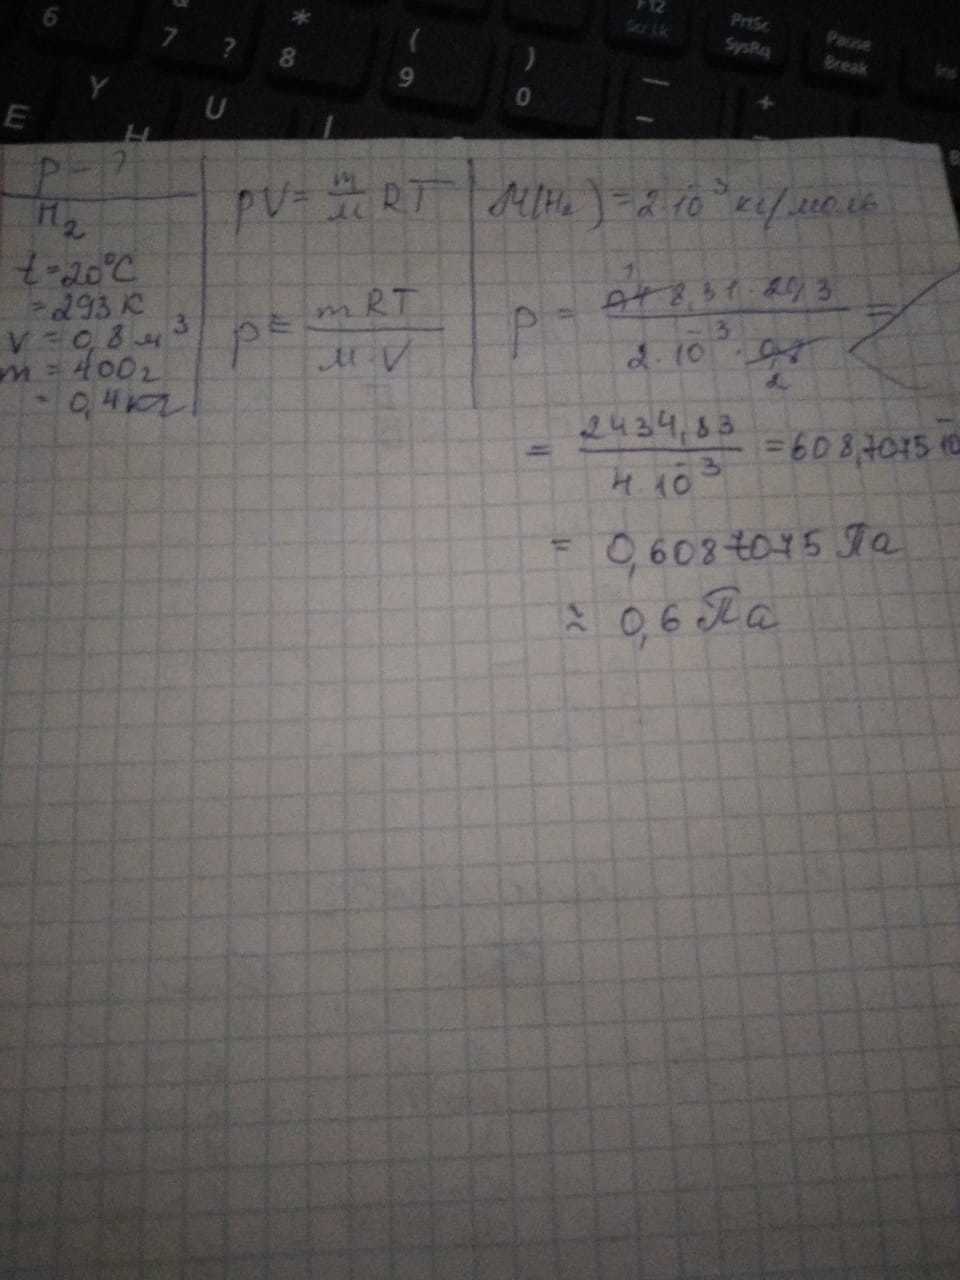 6
7 ?
* 8
( 9
) 0
F12 ScrLk
PrtSc SysRq
Pause Break
Ins
— -
+
E
Y
H
U
p - ?
H₂
t = 20°C
= 293 К
V = 0,8 м³
m = 400 г
= 0,4 кг
pV = m/M RT
p = mRT / M·V
M(H₂) = 2·10⁻³ кг/моль
p = 0,4 1 8,31·293 / 2·10⁻³·0,8 2 =
= 2434,83 / 4·10⁻³ = 608,7075·10⁻
= 0,6087075 Па
≈ 0,6 Па